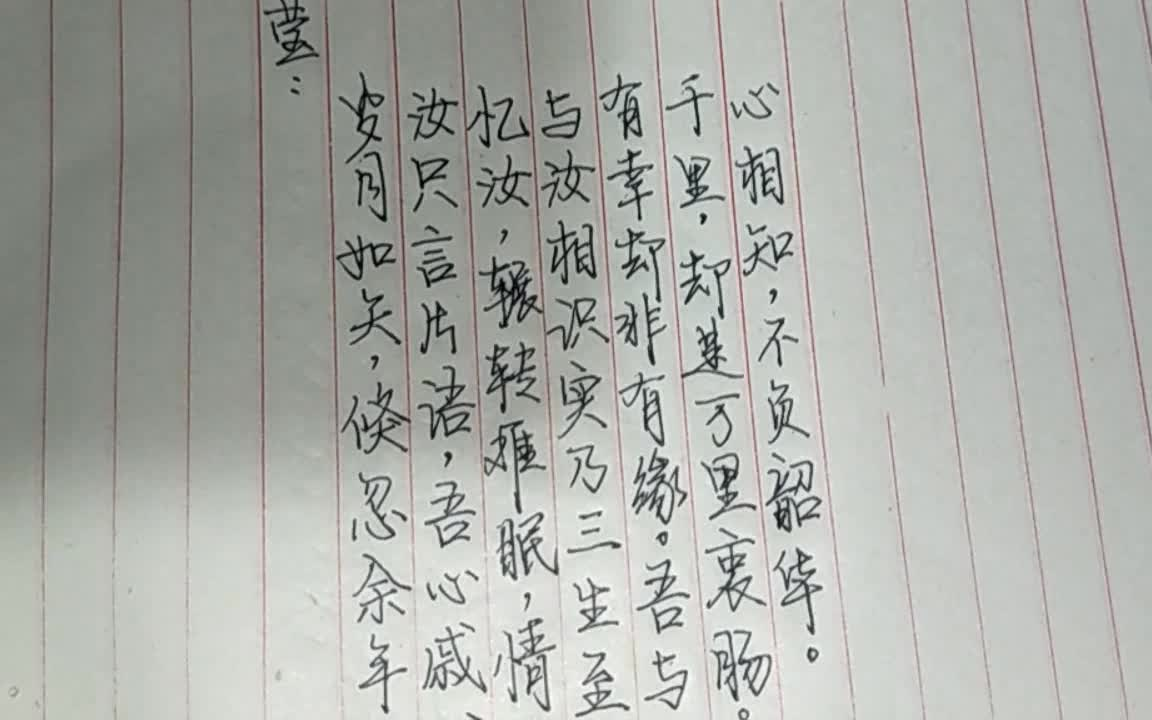 莹：
岁月如矢，倏忽余年
汝只言片语，吾心戚，
忆汝，辗转难眠，情
与汝相识实乃三生至
有幸却非有缘。吾与
千里，却是万里衷肠。
心相知，不负韶华。